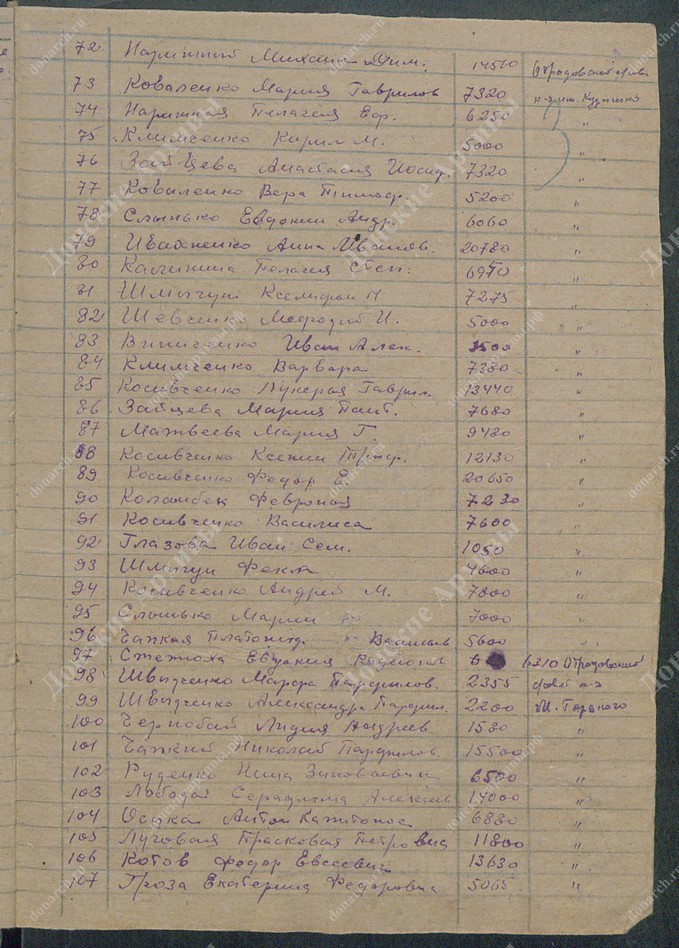 72 Нарижний Михаил Дим. 14510
73 Коваленко Мария Гаврилов 7320
74 Нарижная Пелагея Еф. 6250 "
75 Климченко Кирил М. 5000 "
76 Зайцева Анастасия Иосиф. 7320 "
77 Коваленко Вера Тимоф. 5200 "
78 Слынько Евдокии Андр. 6060 "
79 Иваненко Анна Иванов. 20780 "
80 Калинина Пелагея Степ. 6950 "
81 Шмыгун 7275 "
82 Шевченко Мефодий И. 5000 "
83 Винниченко Иван Алек. 3500 "
84 Климченко Варвара 7380 "
85 Косивченко Лукерья Гаврил. 13440 "
86 Зайцева Мария Пант. 7680 "
87 Матвеева Мария Г. 9480 "
88 Косивченко Ксении 12130 "
89 Косивченко Федор Е 20650 "
90 Феврония 7230 "
91 Косивченко Василиса 7600 "
92 Глазова Иван Сем. 1050 "
93 Шмыгун Фекла 4600 "
94 Косивченко Андрей М. 7800 "
95 Слынько Марии 7000 "
96 Васильев 5600 "
97 Евдокия 6310
98 Швыдченко Марфа Парфилов. 2355
99 Швыдченко Александра Парфил. 2200 М. Горького
100 Чернобай Лидия Андреев. 1580 "
101 Николай Парфилов. 15500 "
102 Руденко Нина Зиновьевна 6500 "
103 Лобода Серафима Алексеев 14000 "
104 Антон Капитонов 6880 "
105 Луговая Прасковья Петровна 11800 "
106 Котов Федор Евсеевич 13630 "
107 Гроза Екатерина Федоровна 5065 "
Донские Архивы
donarch.ru